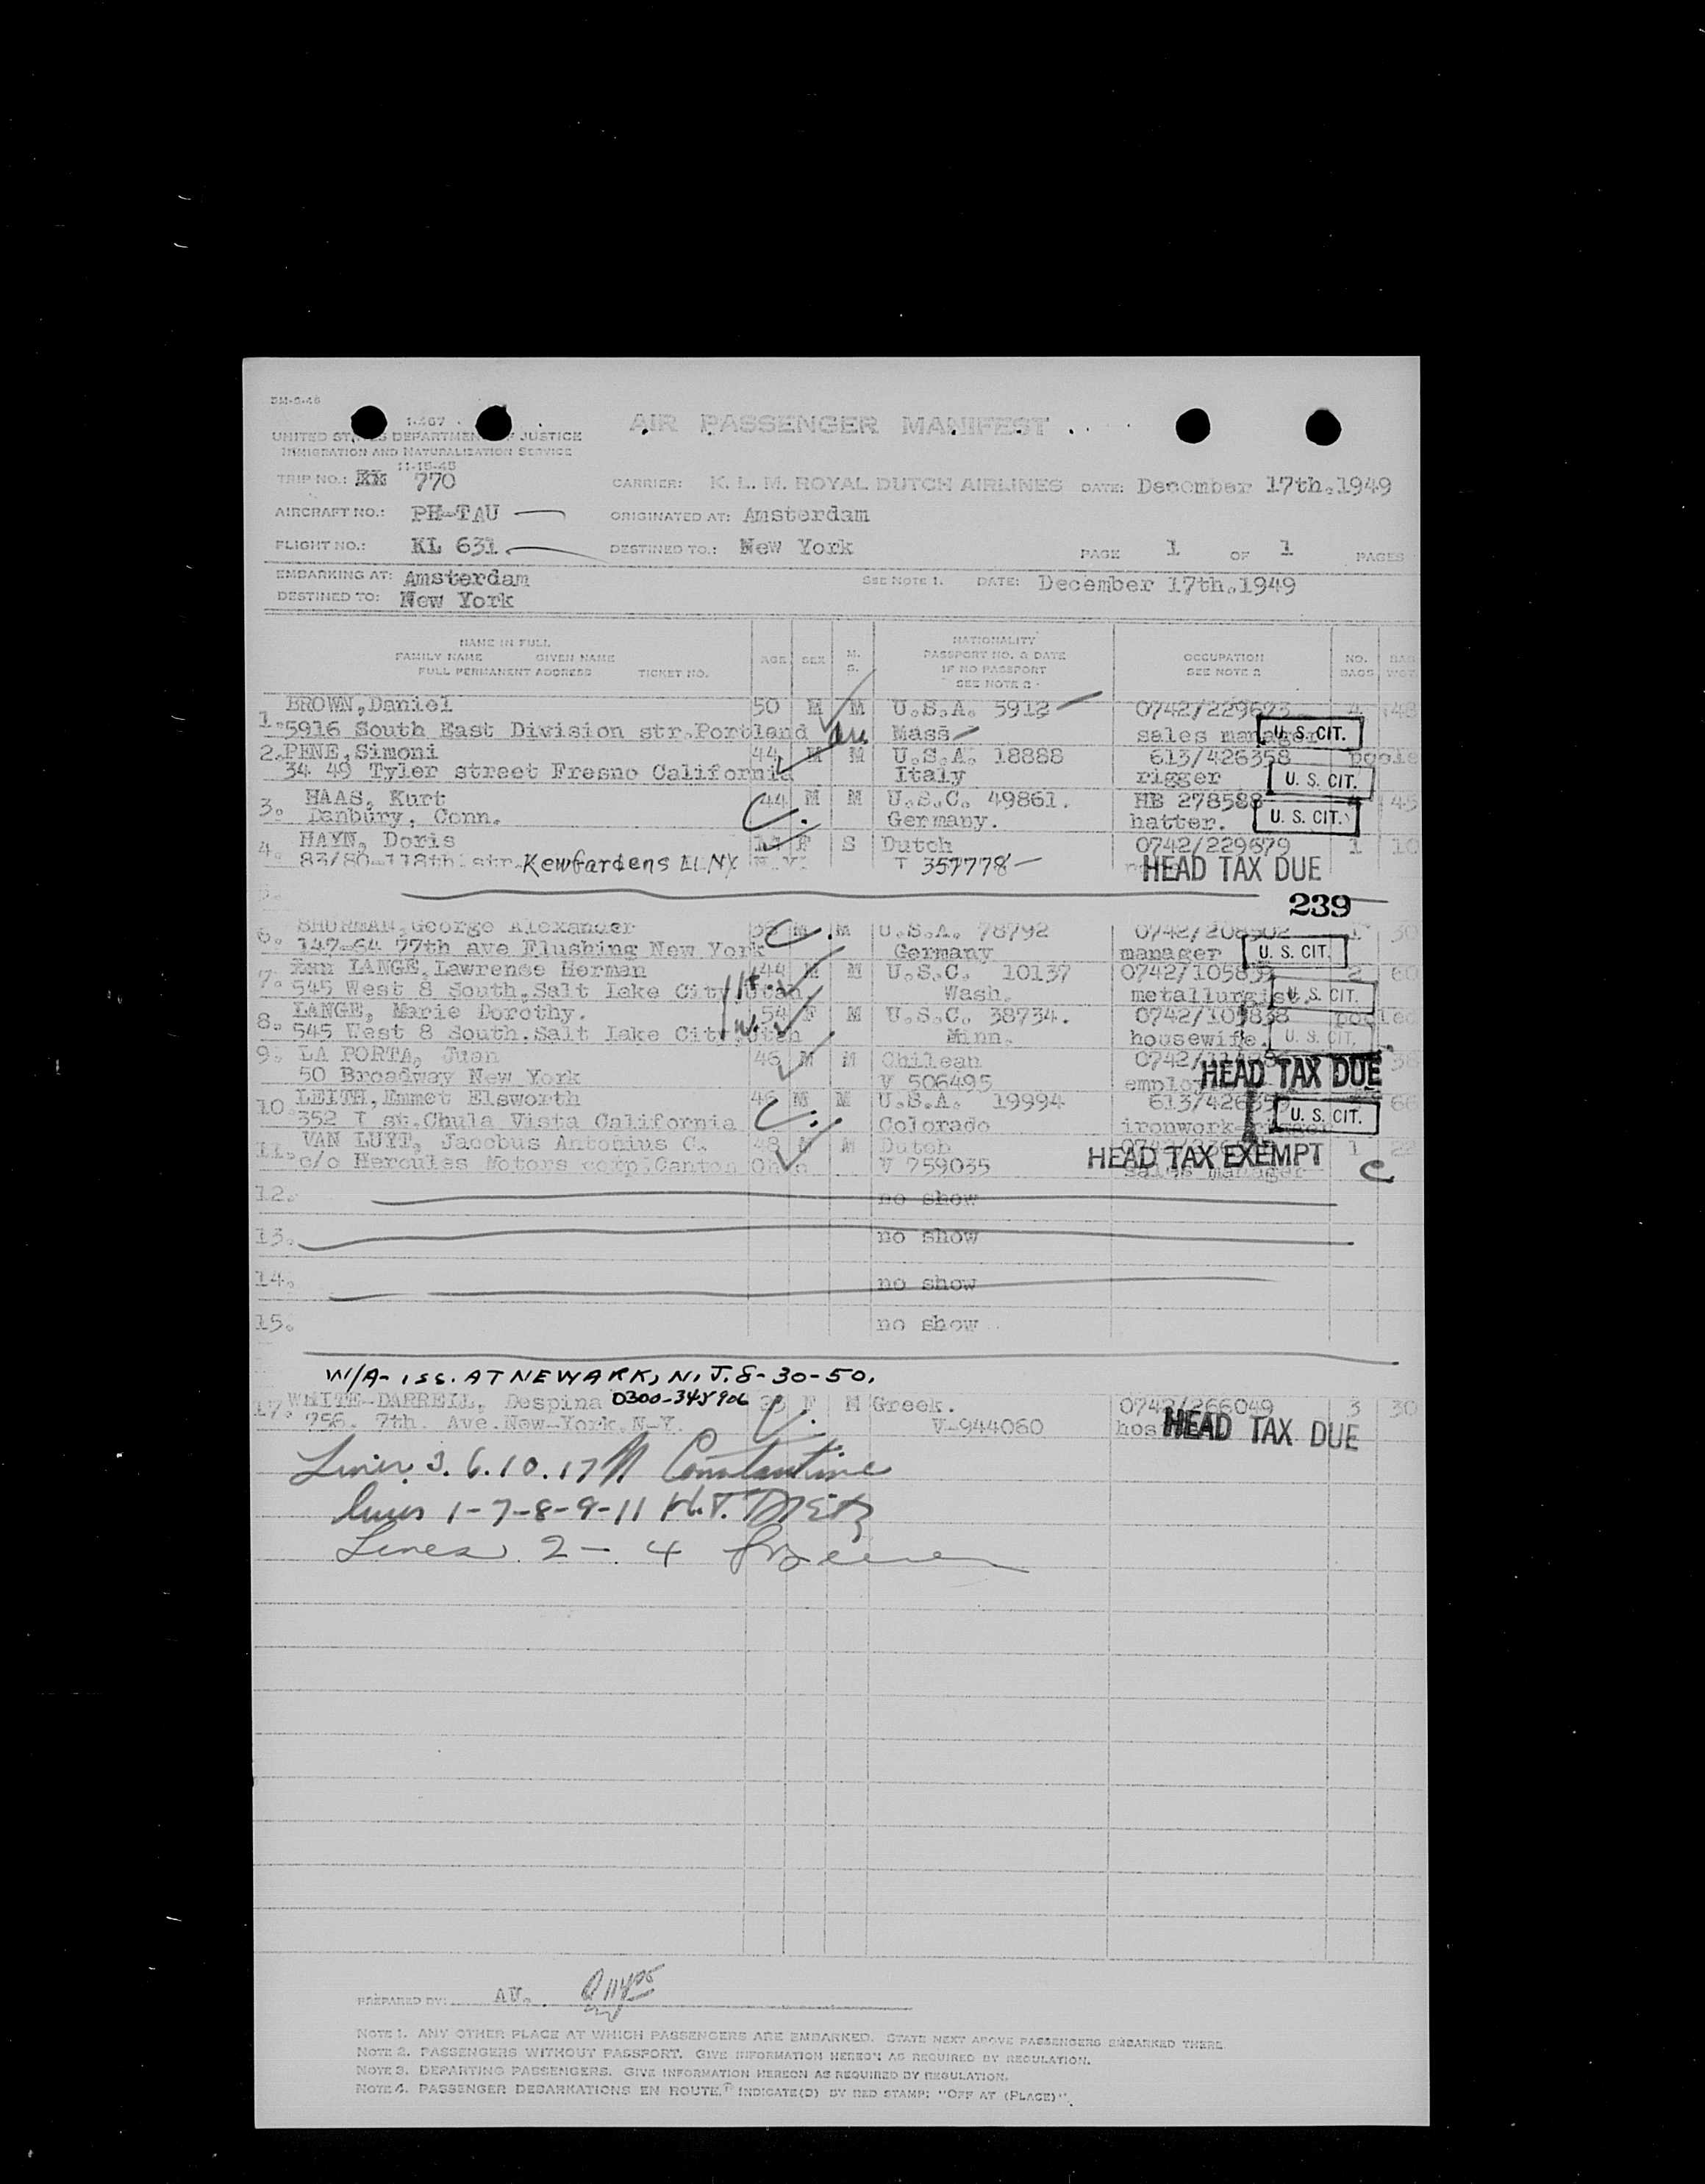 BM-5-46
I-467
AIR PASSENGER MANIFEST
UNITED STATES DEPARTMENT OF JUSTICE
IMMIGRATION AND NATURALIZATION SERVICE
11-15-45
TRIP NO.: 770 CARRIER: K. L. M. ROYAL DUTCH AIRLINES DATE: December 17th.1949
AIRCRAFT NO.: PH-TAU ORIGINATED AT: Amsterdam
FLIGHT NO.: KL 631. DESTINED TO.: New York PAGE 1 OF 1 PAGES
EMBARKING AT: Amsterdam SEE NOTE 1. DATE: December 17th.1949
DESTINED TO: New York
NAME IN FULL NATIONALITY
FAMILY NAME GIVEN NAME AGE SEX M. S. PASSPORT NO. & DATE OCCUPATION NO. BAG
FULL PERMANENT ADDRESS TICKET NO. IF NO PASSPORT SEE NOTE 2 BAGS WGT.
SEE NOTE 2
BROWN,Daniel 50 M M U.S.A. 5912 0742/229673 4 48
1. 5916 South East Division str.Portland Mass sales manager U. S. CIT.
2. PENE,Simoni 44 M M U.S.A. 18888 613/426358
34 49 Tyler street Fresno California Italy rigger U. S. CIT.
HAAS, Kurt 44 M M U.S.C. 49861. HB 278588 45
3. Danbury, Conn. Germany. hatter. U. S. CIT.
HAYN, Doris 11 F S Dutch 0742/229679 1 10
4. 83/80-118th str. Kew Gardens LI.NY N.Y. T 357778 HEAD TAX DUE
5.
239
SHURMAN,George Alexander M M U.S.A. 78792 0742/208502 1 30
6. 147-64 77th ave Flushing New York Germany manager U. S. CIT.
7. LANGE,Lawrense Herman 44 M M U.S.C. 10137 0742/105837 2 60
545 West 8 South.Salt Lake City,Utah. Wash. metallurgist. U. S. CIT.
LANGE, Marie Dorothy. 54 F M U.S.C. 38734. 0742/105838 pooled
8. 545 West 8 South.Salt Lake City,Utah Minn. housewife. U. S. CIT.
9. LA PORTA, Juan 46 M M Chilean
50 Broadway New York V 506495 HEAD TAX DUE
LEITH,Emmet Elsworth 46 M M U.S.A. 19994 613/426359 66
10. 352 I st.Chula Vista California Colorado U. S. CIT.
VAN LUYT, Jacobus Antonius C. 48 M M Dutch 1 22
11. c/o Hercules Motors corp.Canton Ohio V 759035 HEAD TAX EXEMPT C
sales manager
12. no show
13. no show
14. no show
15. no show
W/A- iss. AT NEWARK, N. J. 8-30-50.
17. WHITE-DARREIL, Despina F M Greek. 0742/266049 3 30
756. 7th. Ave.New-York.N-Y. V-944060 HEAD TAX DUE
Lines 3. 6. 10. 17 Constantine
Lines 1-7-8-9-11 H.T. Dietz
Lines 2 - 4
PREPARED BY: AU.
NOTE 1. ANY OTHER PLACE AT WHICH PASSENGERS ARE EMBARKED. STATE NEXT ABOVE PASSENGERS EMBARKED THERE
NOTE 2. PASSENGERS WITHOUT PASSPORT. GIVE INFORMATION HEREON AS REQUIRED BY REGULATION.
NOTE 3. DEPARTING PASSENGERS. GIVE INFORMATION HEREON AS REQUIRED BY REGULATION.
NOTE 4. PASSENGER DEBARKATIONS EN ROUTE, INDICATE(D) BY RED STAMP: "OFF AT (PLACE)".